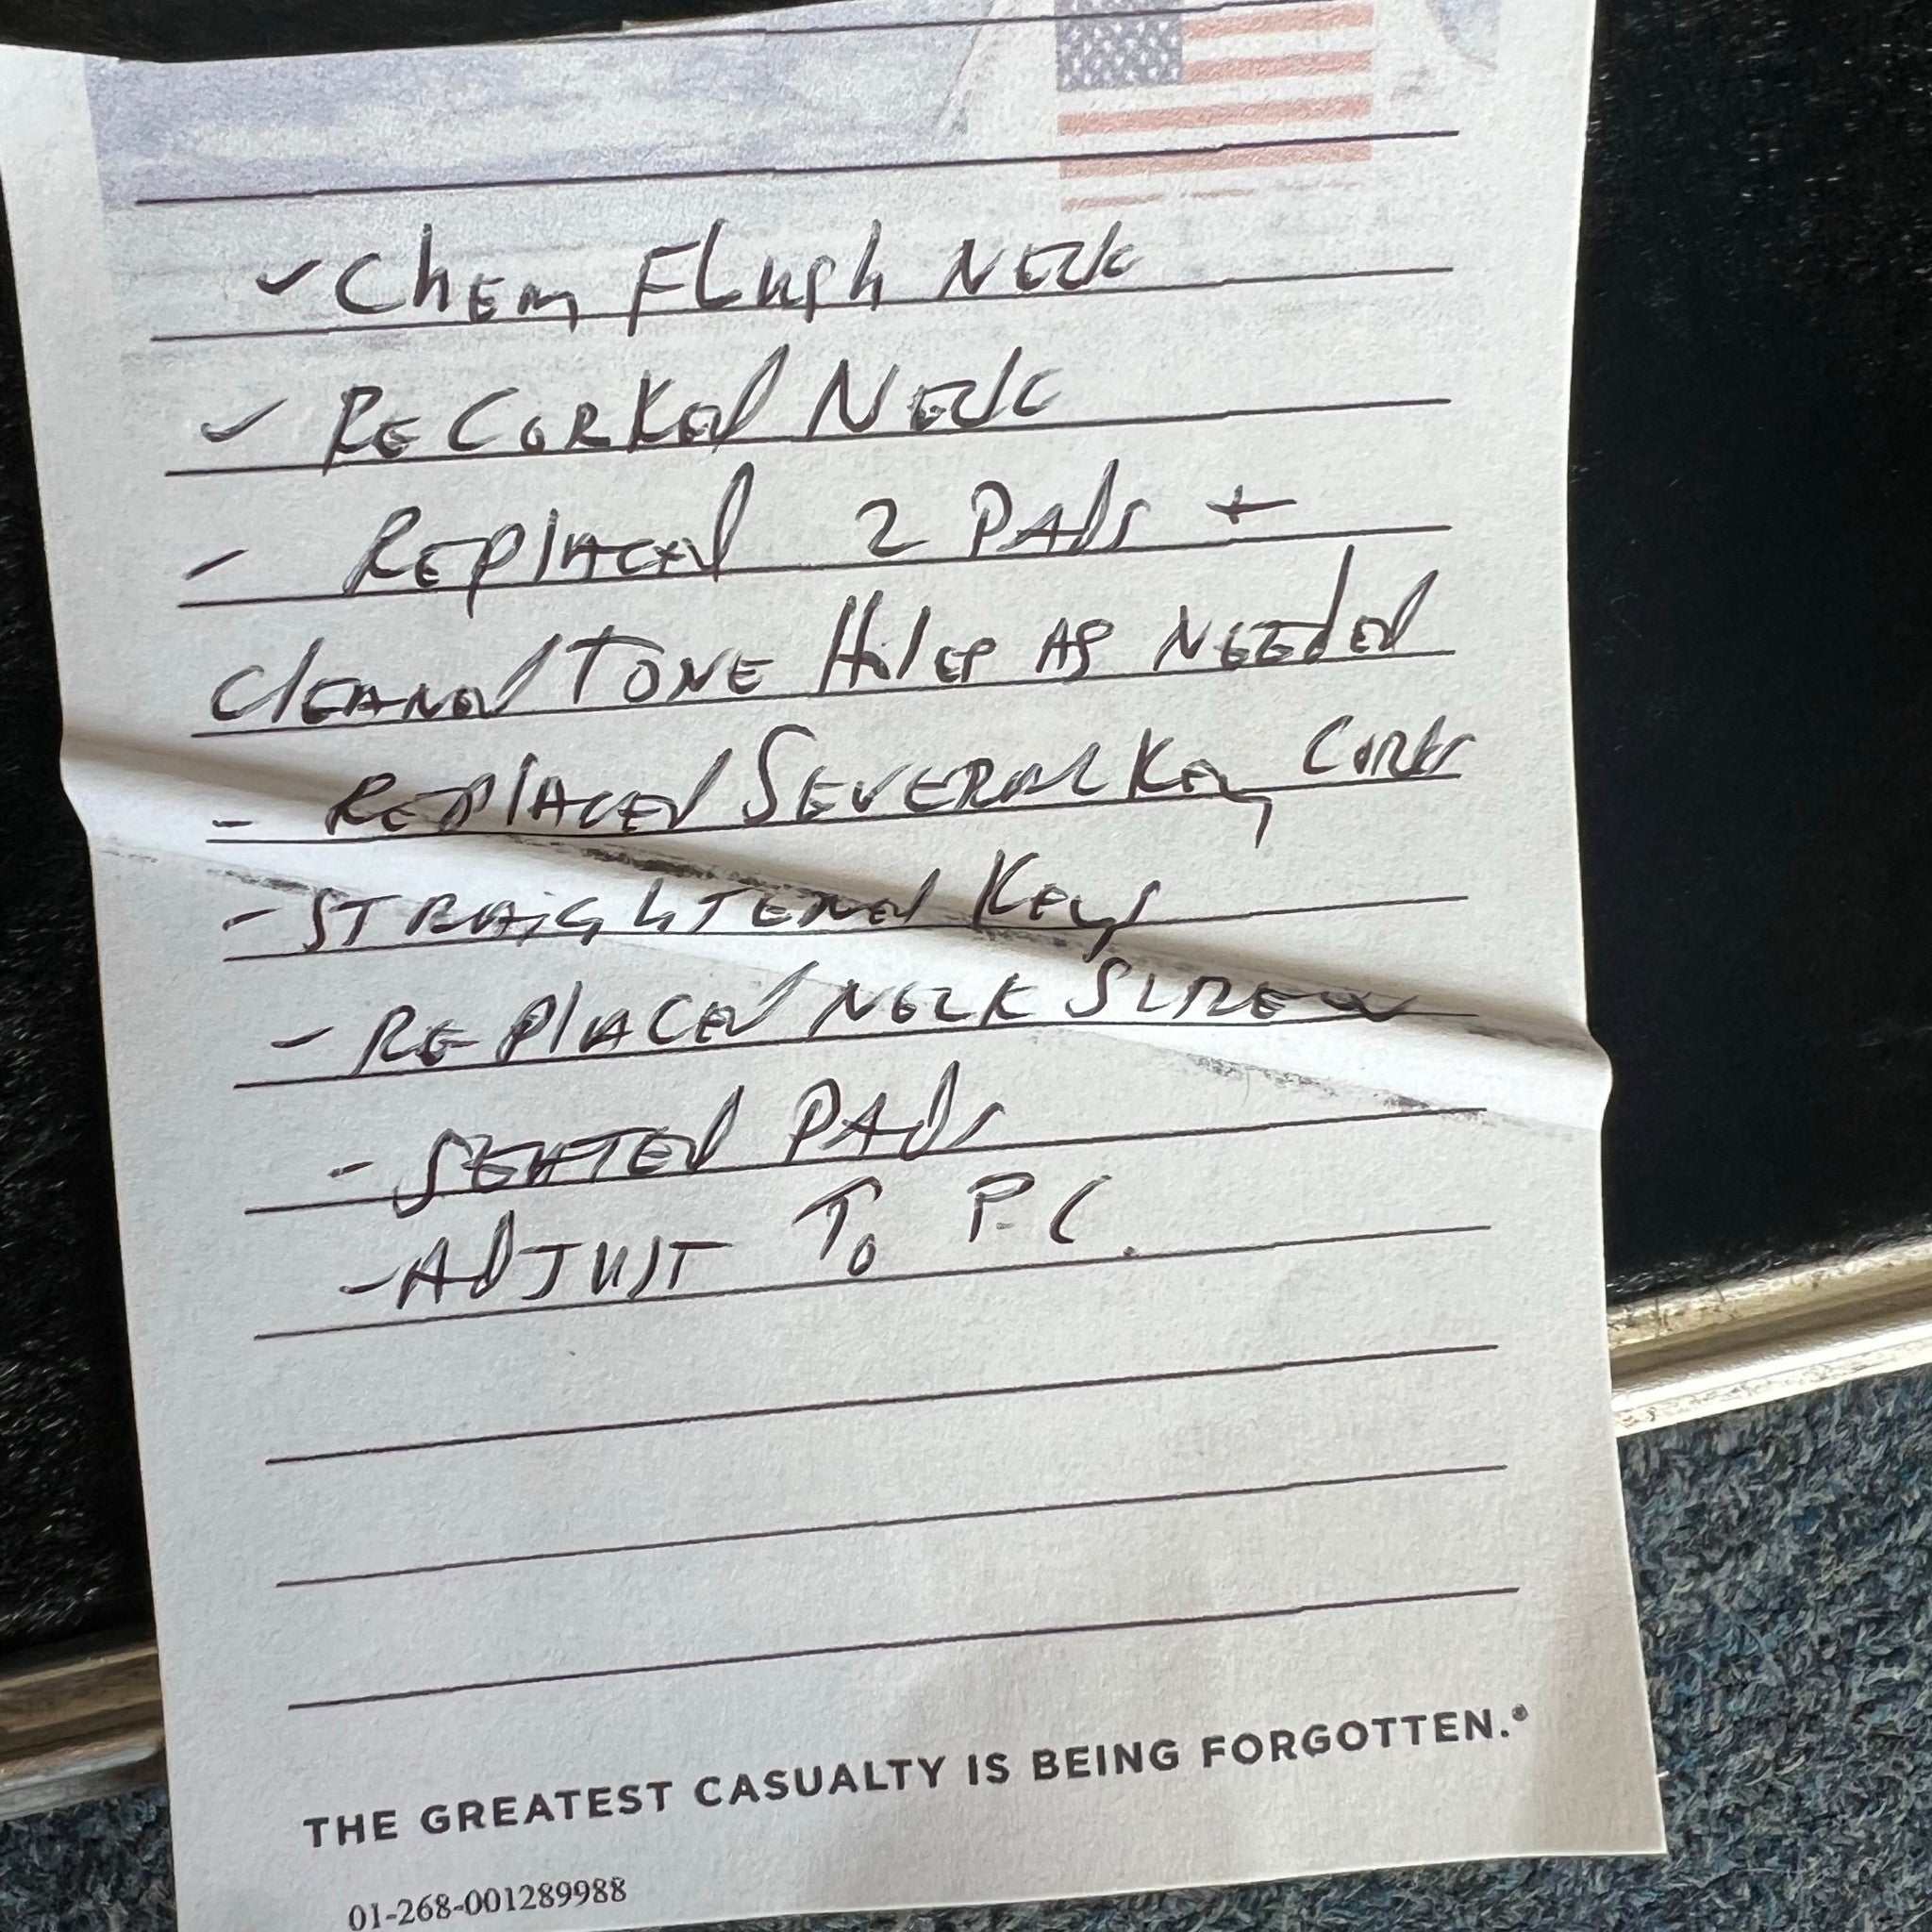 ✓ Chem Flush Neck
✓ ReCorked Neck
- Replaced 2 Pads +
Cleaned Tone Holes As Needed
- Replaced Several Key Corks
- Straightened Keys
- Replaced Neck Screw
- Seated Pads
- Adjust To P.C.
THE GREATEST CASUALTY IS BEING FORGOTTEN.®
01-268-001289988